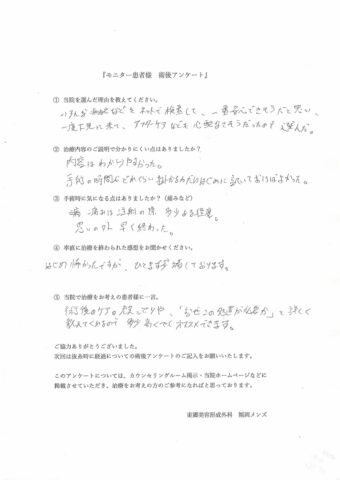 『モニター患者様　術後アンケート』
① 当院を選んだ理由を教えてください。
いろんな病院などをネットで検索して、一番安心できそうだと思い、
一度下見に来て、アフターケアなども心配なさそうだったので選んだ。
② 治療内容のご説明で分かりにくい点はありましたか？
内容はわかりやすかった。
手術の時間がどれくらい掛かるかだけはじめに訊いておけばよかった。
③ 手術時に気になる点はありましたか？（痛みなど）
痛みは注射の際 多少ある程度。
思いの外 早く終わった。
④ 率直に治療を終わられた感想をお聞かせください。
はじめ怖かったですが、ひとまず安心しております。
⑤ 当院で治療をお考えの患者様に一言。
術後のケアの 「なぜこの処置が必要か」と詳しく
教えてくれるので オススメできます。
ご協力ありがとうございました。
次回は抜糸時に経過についての術後アンケートのご記入をお願いいたします。
このアンケートについては、カウンセリングルーム掲示・当院ホームページなどに
掲載させていただき、治療をお考えの方のご参考になればと思っております。
東郷美容形成外科　福岡メンズ